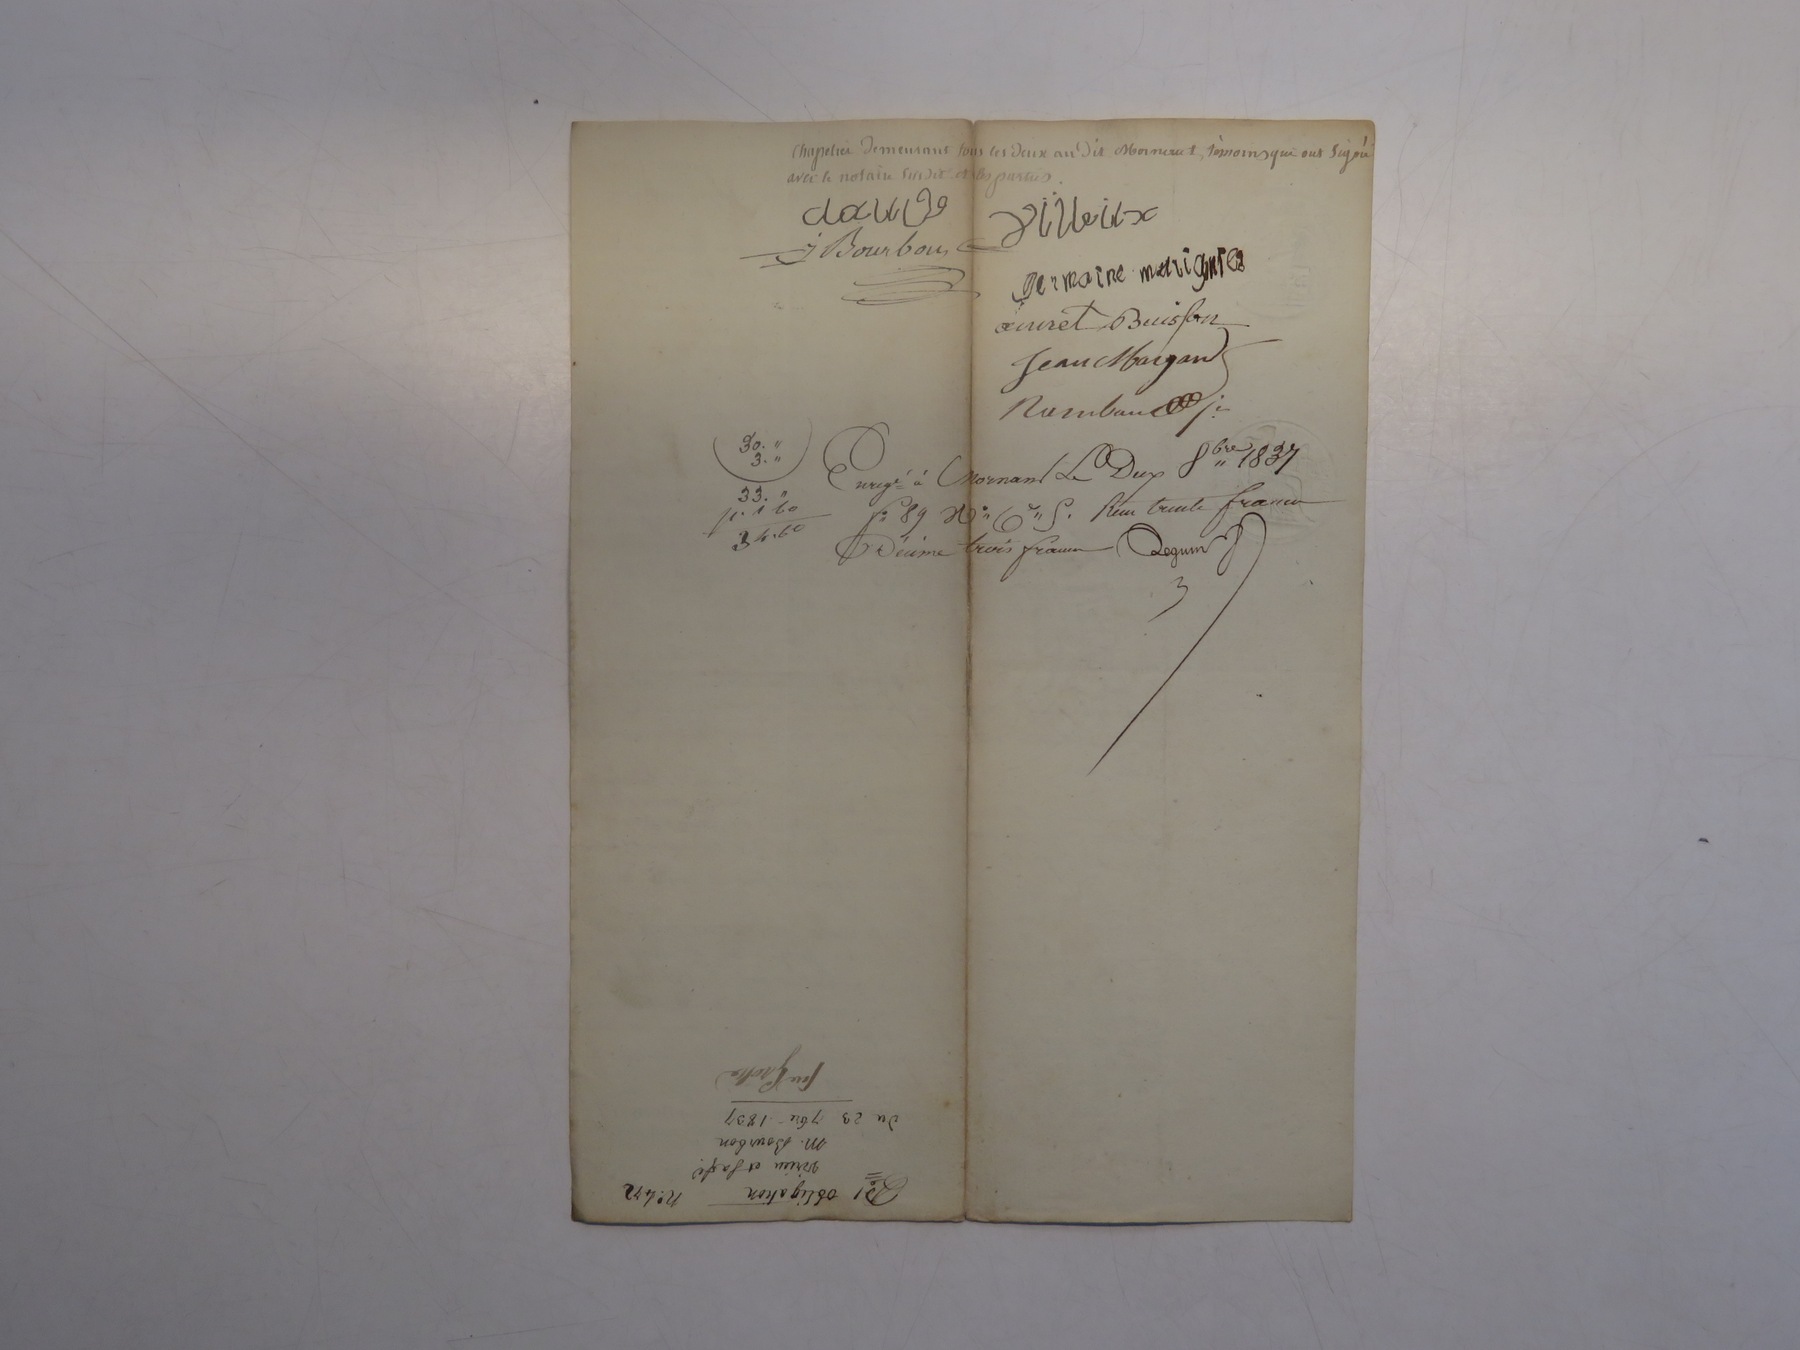 chapelier demeurant tous les deux au dit Mornant, témoins qui ont signé
avec le notaire susdit et les parties.
claude villeux
j Bourbon
germaine marignier
Buisson
Jean Margand
Rambaud
30. "
3. "
33. "
1 60
34.60
Enregé à Mornant Le Deux 8bre 1837
fo 89 Ro Reçu trente francs
Décime trois francs
Du 23 7bre 1837
M. Bourbon
obligation No 472